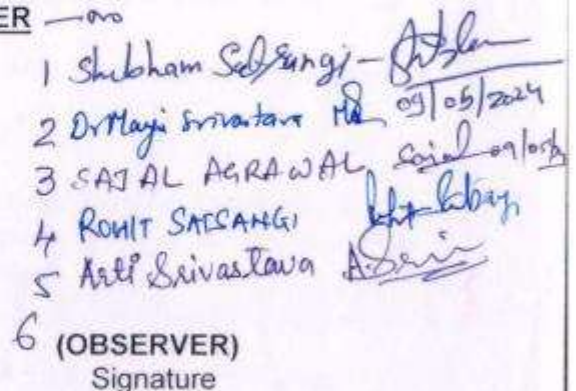 ER
1 Shubham Satsangi -
2 Dr Manju Srivastava 09/05/2024
3 SAJAL AGRAWAL Sajal 09/05/
4 ROHIT SATSANGI
5 Arti Srivastava A.Sriv
6 (OBSERVER)
Signature